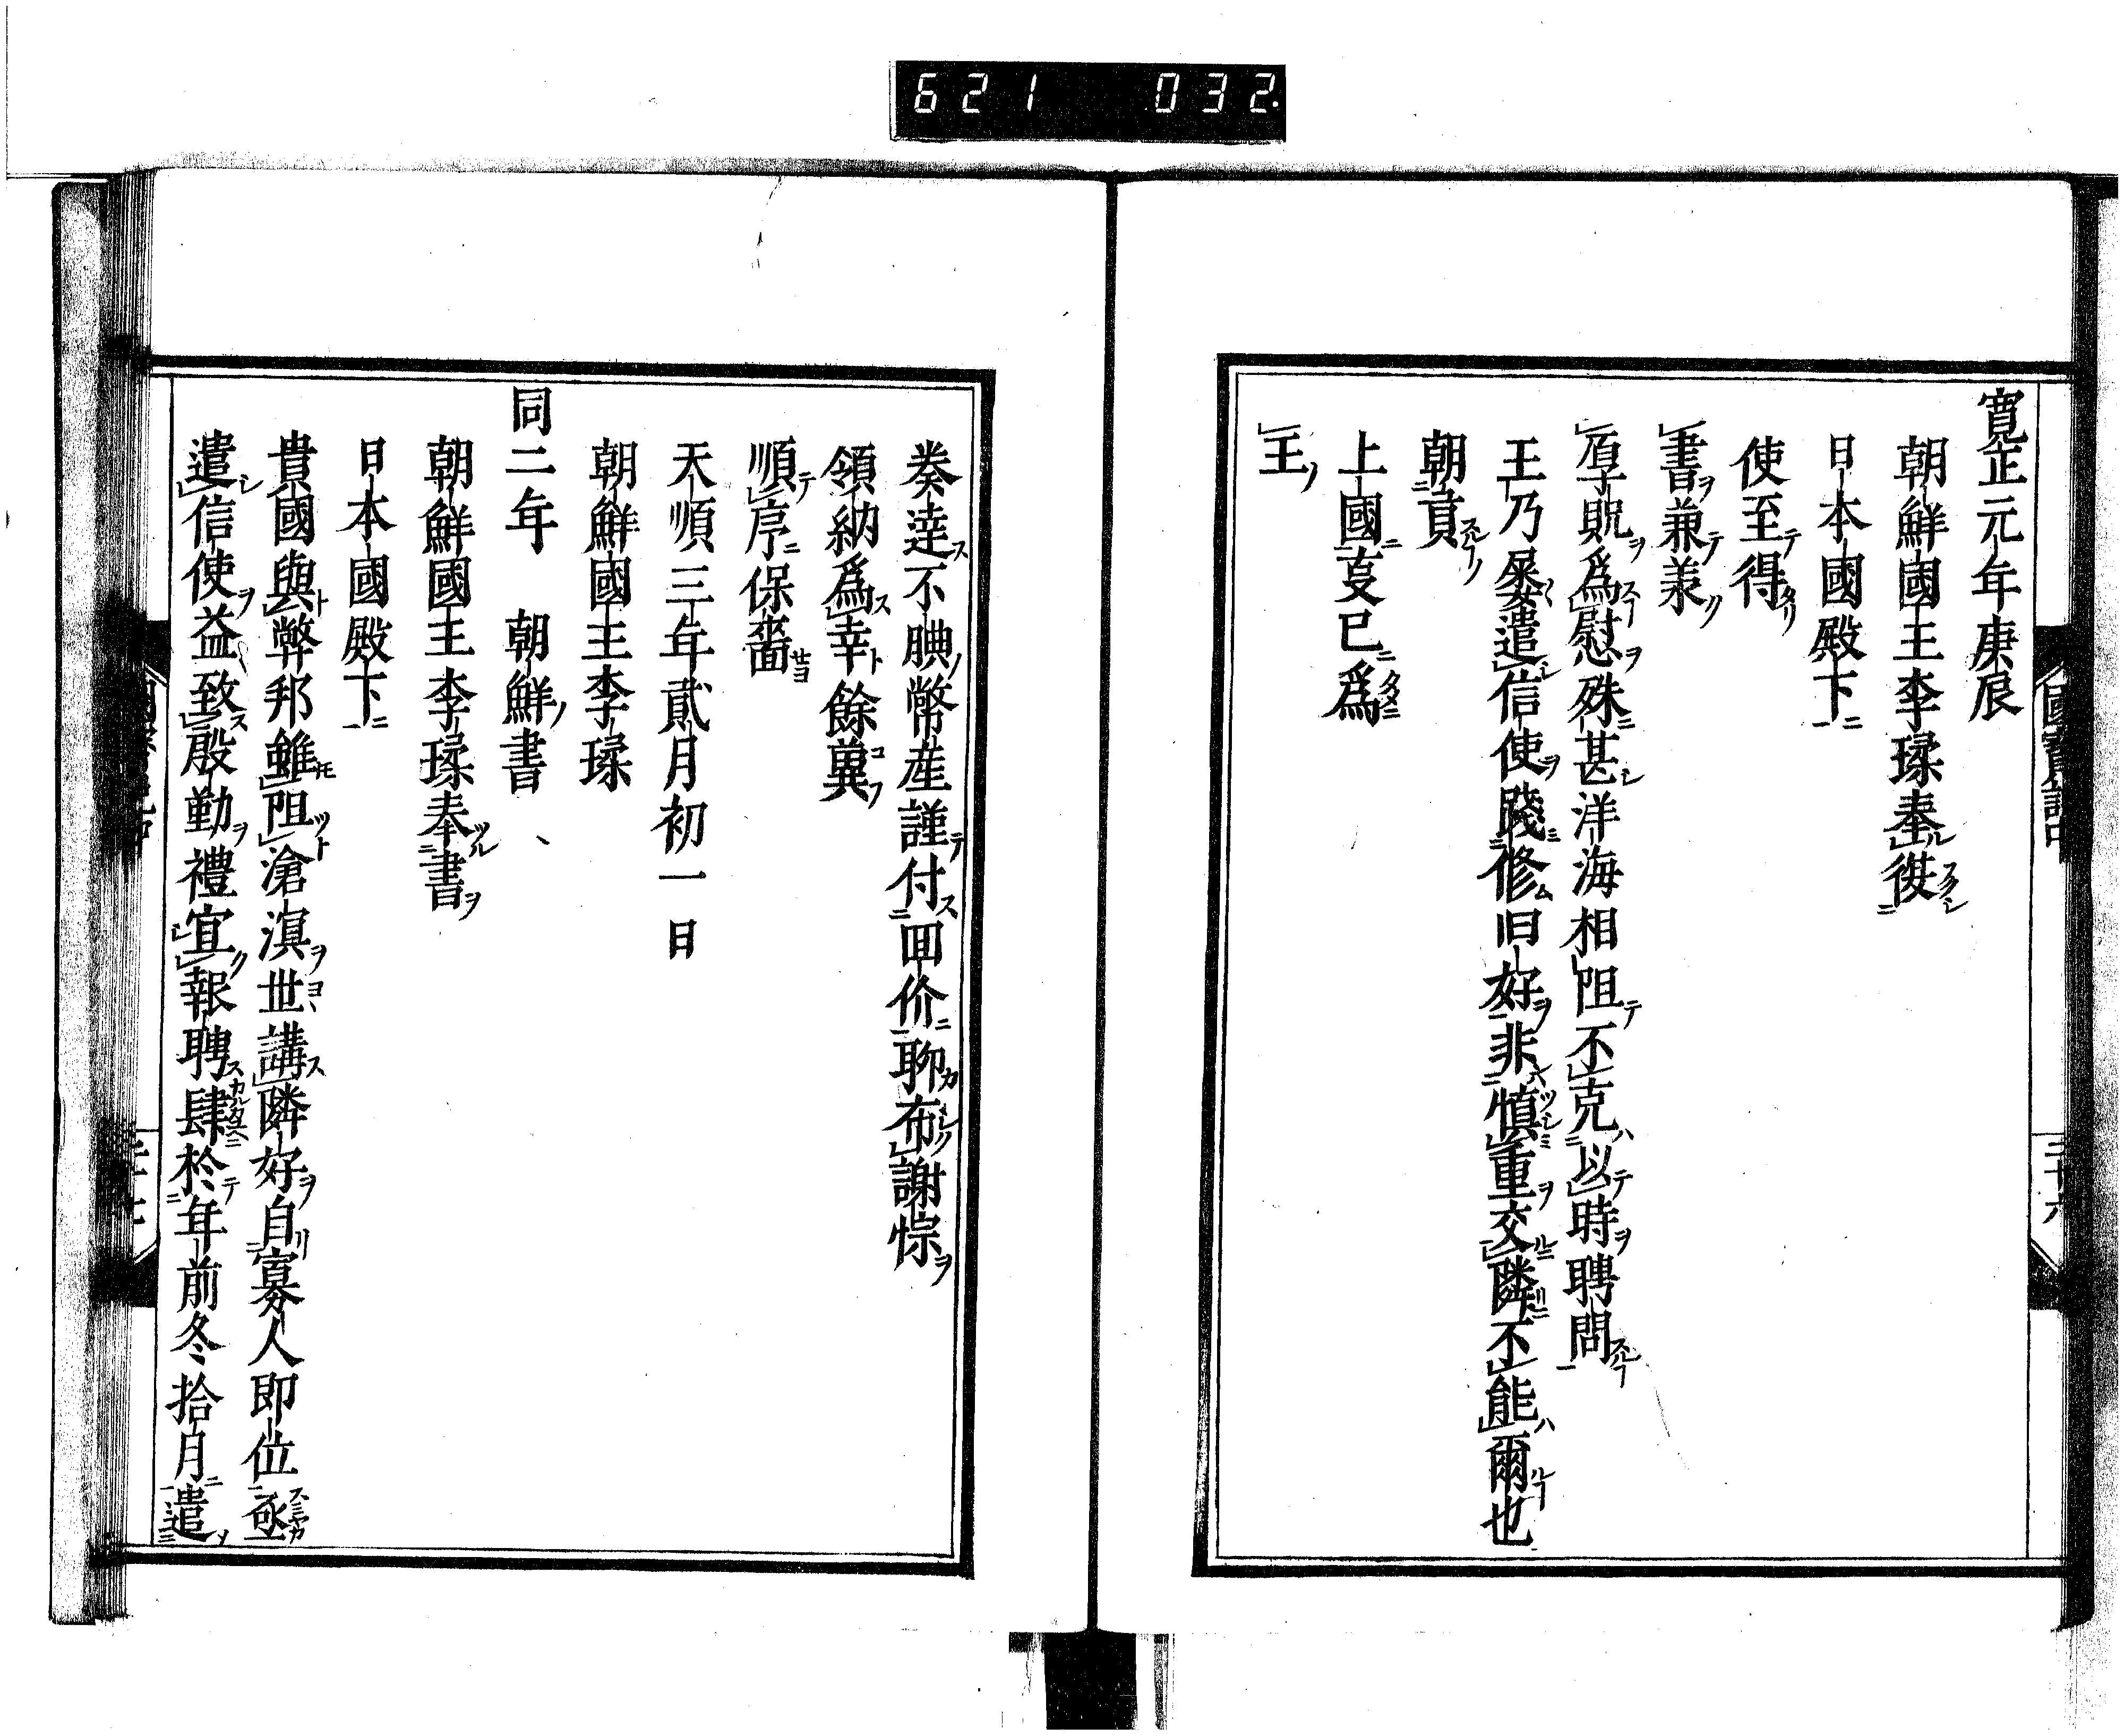 621 032
寛正元年庚辰
朝鮮國王李瑈奉復
日本國殿下
使至得
書兼羕
厚貺爲慰殊甚洋海相阻不克以時聘問
王乃屡遣信使踐修旧好非慎重交隣不能爾也
朝貢
上國㕝已爲
王
二十六
奏達不腆幣産謹付回价聊布謝悰
領納爲幸餘冀
順序保嗇
天順三年貳月初一日
朝鮮國王李瑈
同二年　朝鮮書
朝鮮國王李瑈奉書
日本國殿下
貴國與弊邦雖阻滄溟世講隣好自寡人即位亟
遣信使益致殷勤禮宜報聘肆於年前冬拾月遣